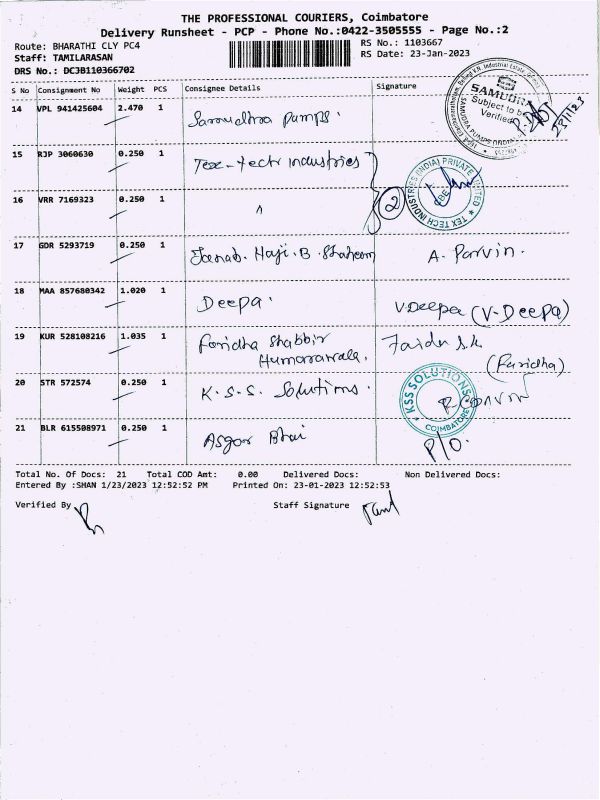 THE PROFESSIONAL COURIERS, Coimbatore
Delivery Runsheet - PCP - Phone No.:0422-3505555 - Page No.:2
Route: BHARATHI CLY PC4
RS No.: 1103667
Staff: TAMILARASAN
RS Date: 23-Jan-2023
DRS No.: DCJB110366702
S No Consignment No Weight PCS Consignee Details Signature
14 VPL 941425604 2.470 1 Samudhra Pumps.
SAMUDRA
Subject to be
Verified
23/1/23
15 RJP 3060630 0.250 1 Tex-tech industries
16 VRR 7169323 0.250 1 "
2
TEX TECH INDUSTRIES (INDIA) PRIVATE LIMITED
17 GDR 5293719 0.250 1 Janab. Haji. B. Shaheem A. Parvin.
18 MAA 857680342 1.020 1 Deepa. V.Deepa (V-Deepa)
19 KUR 528108216 1.035 1 Faridha Shabbir
(Faridha)
20 STR 572574 0.250 1 K.S.S. Solutions.
KSS SOLUTIONS
COIMBATORE
21 BLR 615508971 0.250 1 Asgar Bhai P/O.
Total No. Of Docs: 21 Total COD Amt: 0.00 Delivered Docs: Non Delivered Docs:
Entered By :SHAN 1/23/2023 12:52:52 PM Printed On: 23-01-2023 12:52:53
Verified By Staff Signature